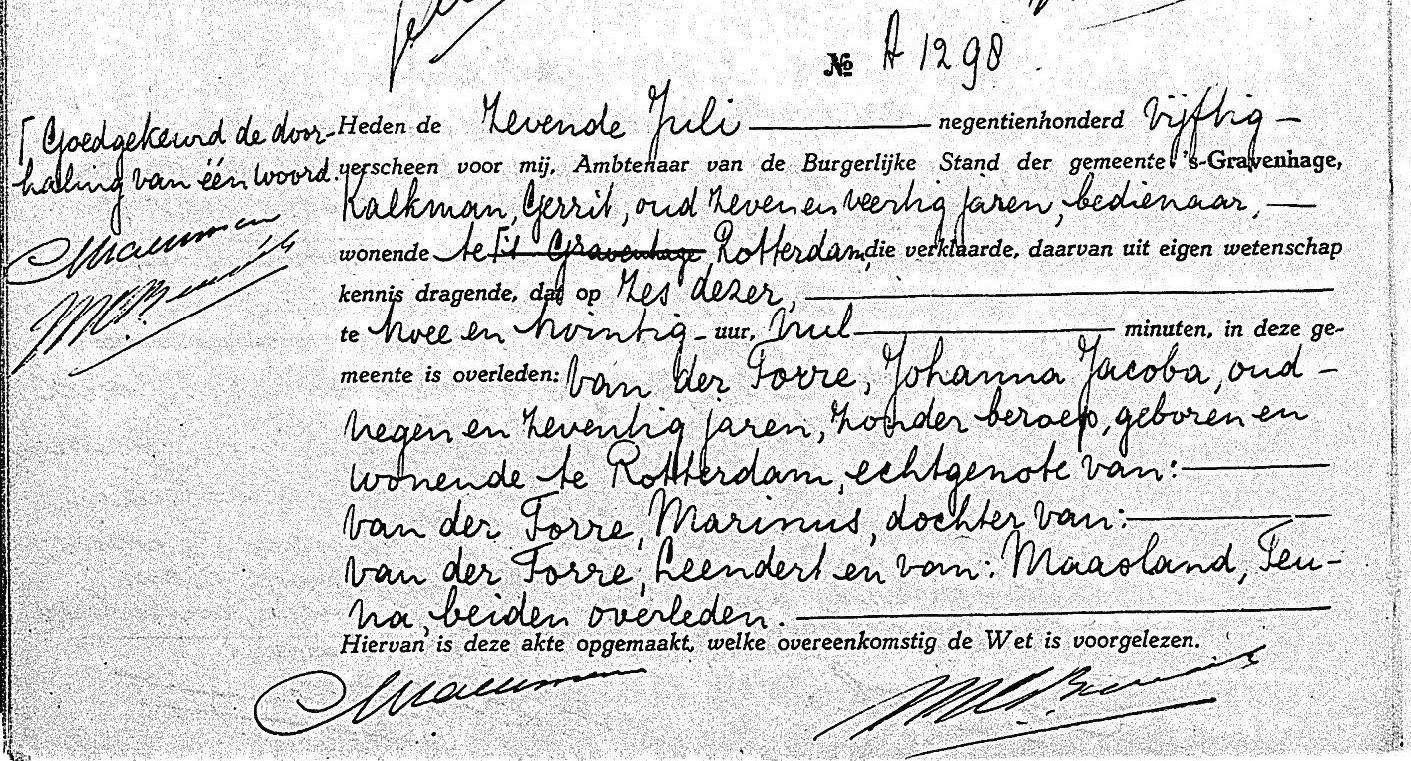 № A 1298
[ Goedgekeurd de door-
haling van één woord.
Heden de Zevende Juli negentienhonderd vijftig —
verscheen voor mij, Ambtenaar van de Burgerlijke Stand der gemeente 's-Gravenhage,
Kalkman, Gerrit, oud zeven en veertig jaren, bedienaar, —
wonende te [ 's Gravenhage Rotterdam, die verklaarde, daarvan uit eigen wetenschap
kennis dragende, dat op zes dezer,
te twee en twintig - uur, nul minuten, in deze ge-
meente is overleden: van der Torre, Johanna Jacoba, oud -
negen en zeventig jaren, zonder beroep, geboren en
wonende te Rotterdam, echtgenote van:
van der Torre, Marinus, dochter van:
van der Torre, Leendert en van: Maasland, Teu-
na, beiden overleden.
Hiervan is deze akte opgemaakt, welke overeenkomstig de Wet is voorgelezen.